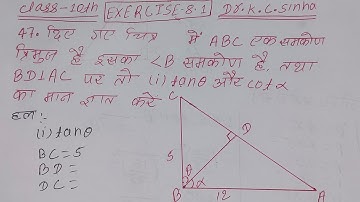 Class-10th EXERCISE-8.1 Dr.K.C.Sinha
47. दिए गए चित्र में ABC एक समकोण
त्रिभुज है इसका <B समकोण है तथा
BD⊥AC पर तो (i) tanθ और cotα
का मान ज्ञात करें
हल:-
(i) tanθ
BC=5
BD=
DC=
C
D
5
θ
α
B
12
A